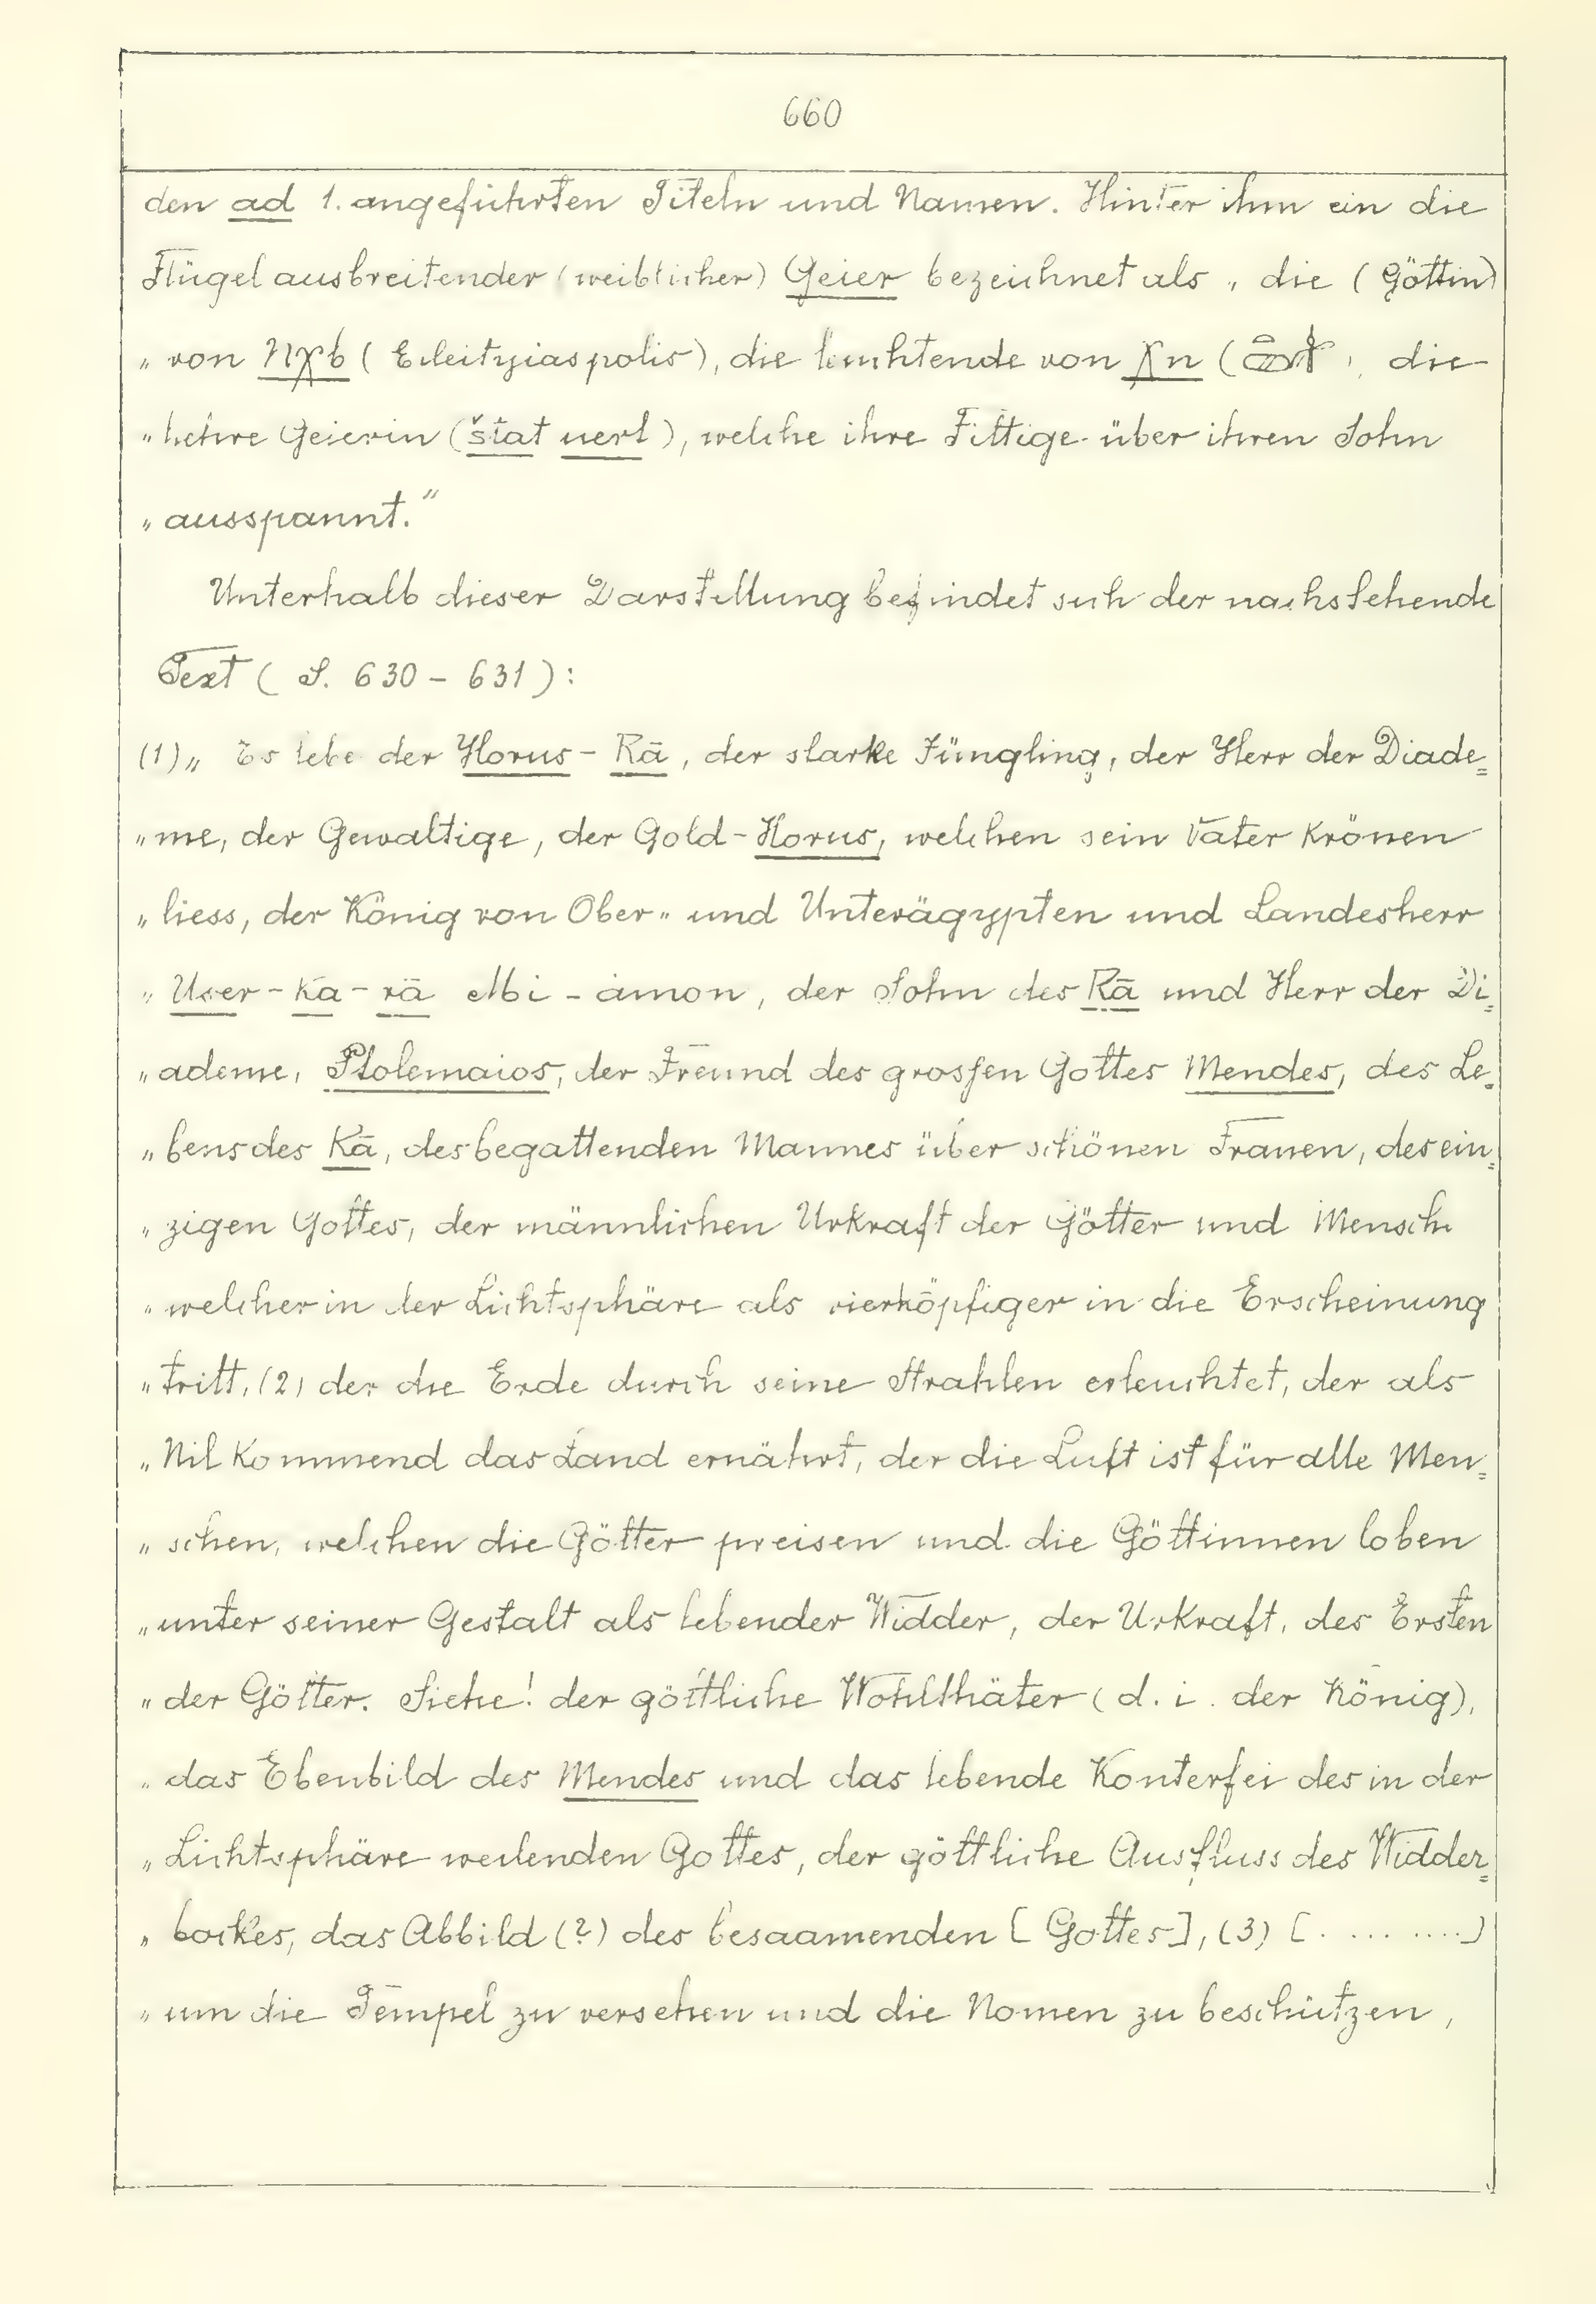 660
den ad 1. angeführten Titeln und Namen. Hinter ihm ein die
Flügel ausbreitender (weiblicher) Geier bezeichnet als „ die (Göttin)
„ von Nχb (Eileityiaspolis), die leuchtende von χn ( , die
„ hehre Geierin (štat uert), welche ihre Fittige über ihren Sohn
„ ausspannt.“
Unterhalb dieser Darstellung befindet sich der nachstehende
Text (S. 630 – 631):
(1) „ Es lebe der Horus - Rā, der starke Jüngling, der Herr der Diade=
„ me, der Gewaltige, der Gold-Horus, welchen sein Vater krönen
„ liess, der König von Ober- und Unterägypten und Landesherr
„ User-ka-rā Mi-amon, der Sohn des Rā und Herr der Di=
„ ademe, Ptolemaios, der Freund des grossen Gottes Mendes, des Le=
„ bens des Rā, des begattenden Mannes über schönen Frauen, des ein=
„ zigen Gottes, der männlichen Urkraft der Götter und Mensch
„ welcher in der Lichtsphäre als vierköpfiger in die Erscheinung
„ tritt, (2) der die Erde durch seine Strahlen erleuchtet, der als
„ Nil kommend das Land ernährt, der die Luft ist für alle Men=
„ schen, welchen die Götter preisen und die Göttinnen loben
„ unter seiner Gestalt als lebender Widder, der Urkraft, des Ersten
„ der Götter. Siehe! der göttliche Wohlthäter (d. i. der König),
„ das Ebenbild des Mendes und das lebende Konterfei des in der
„ Lichtsphäre weilenden Gottes, der göttliche Ausfluss des Widder=
„ bockes, das Abbild (?) des besaamenden [Gottes], (3) [. ... ....]
„ um die Tempel zu versehen und die Nomen zu beschützen,